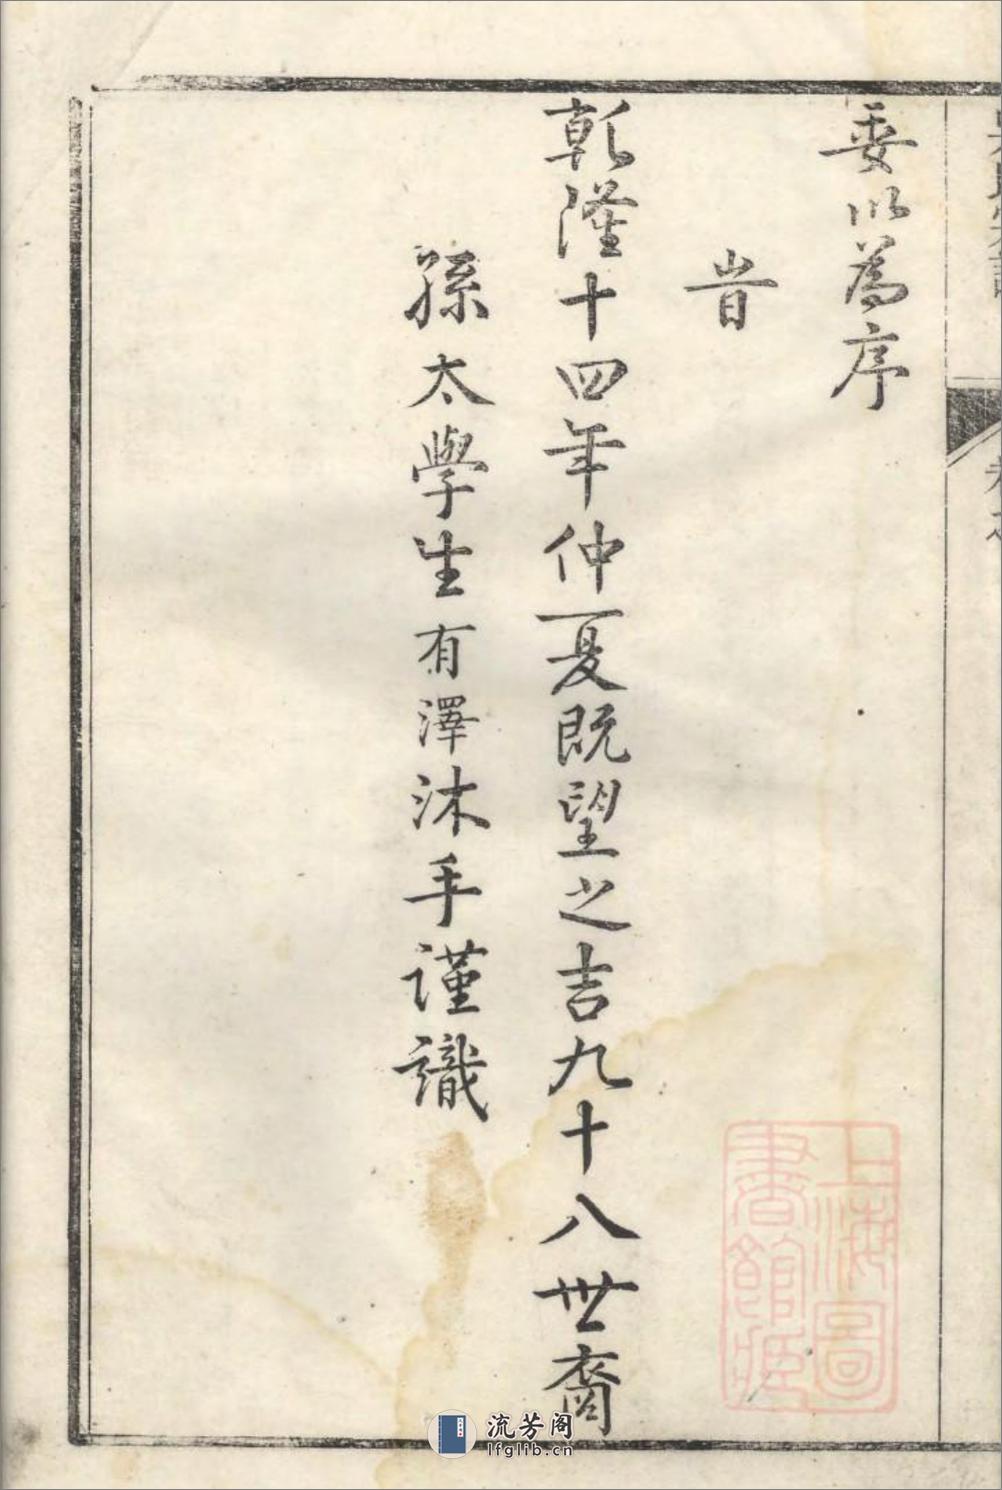 委以為序
旹
乾隆十四年仲夏既望之吉九十八世裔
孫太學生有澤沐手謹識
上海圖
書館藏
流芳阁
lfglib.cn